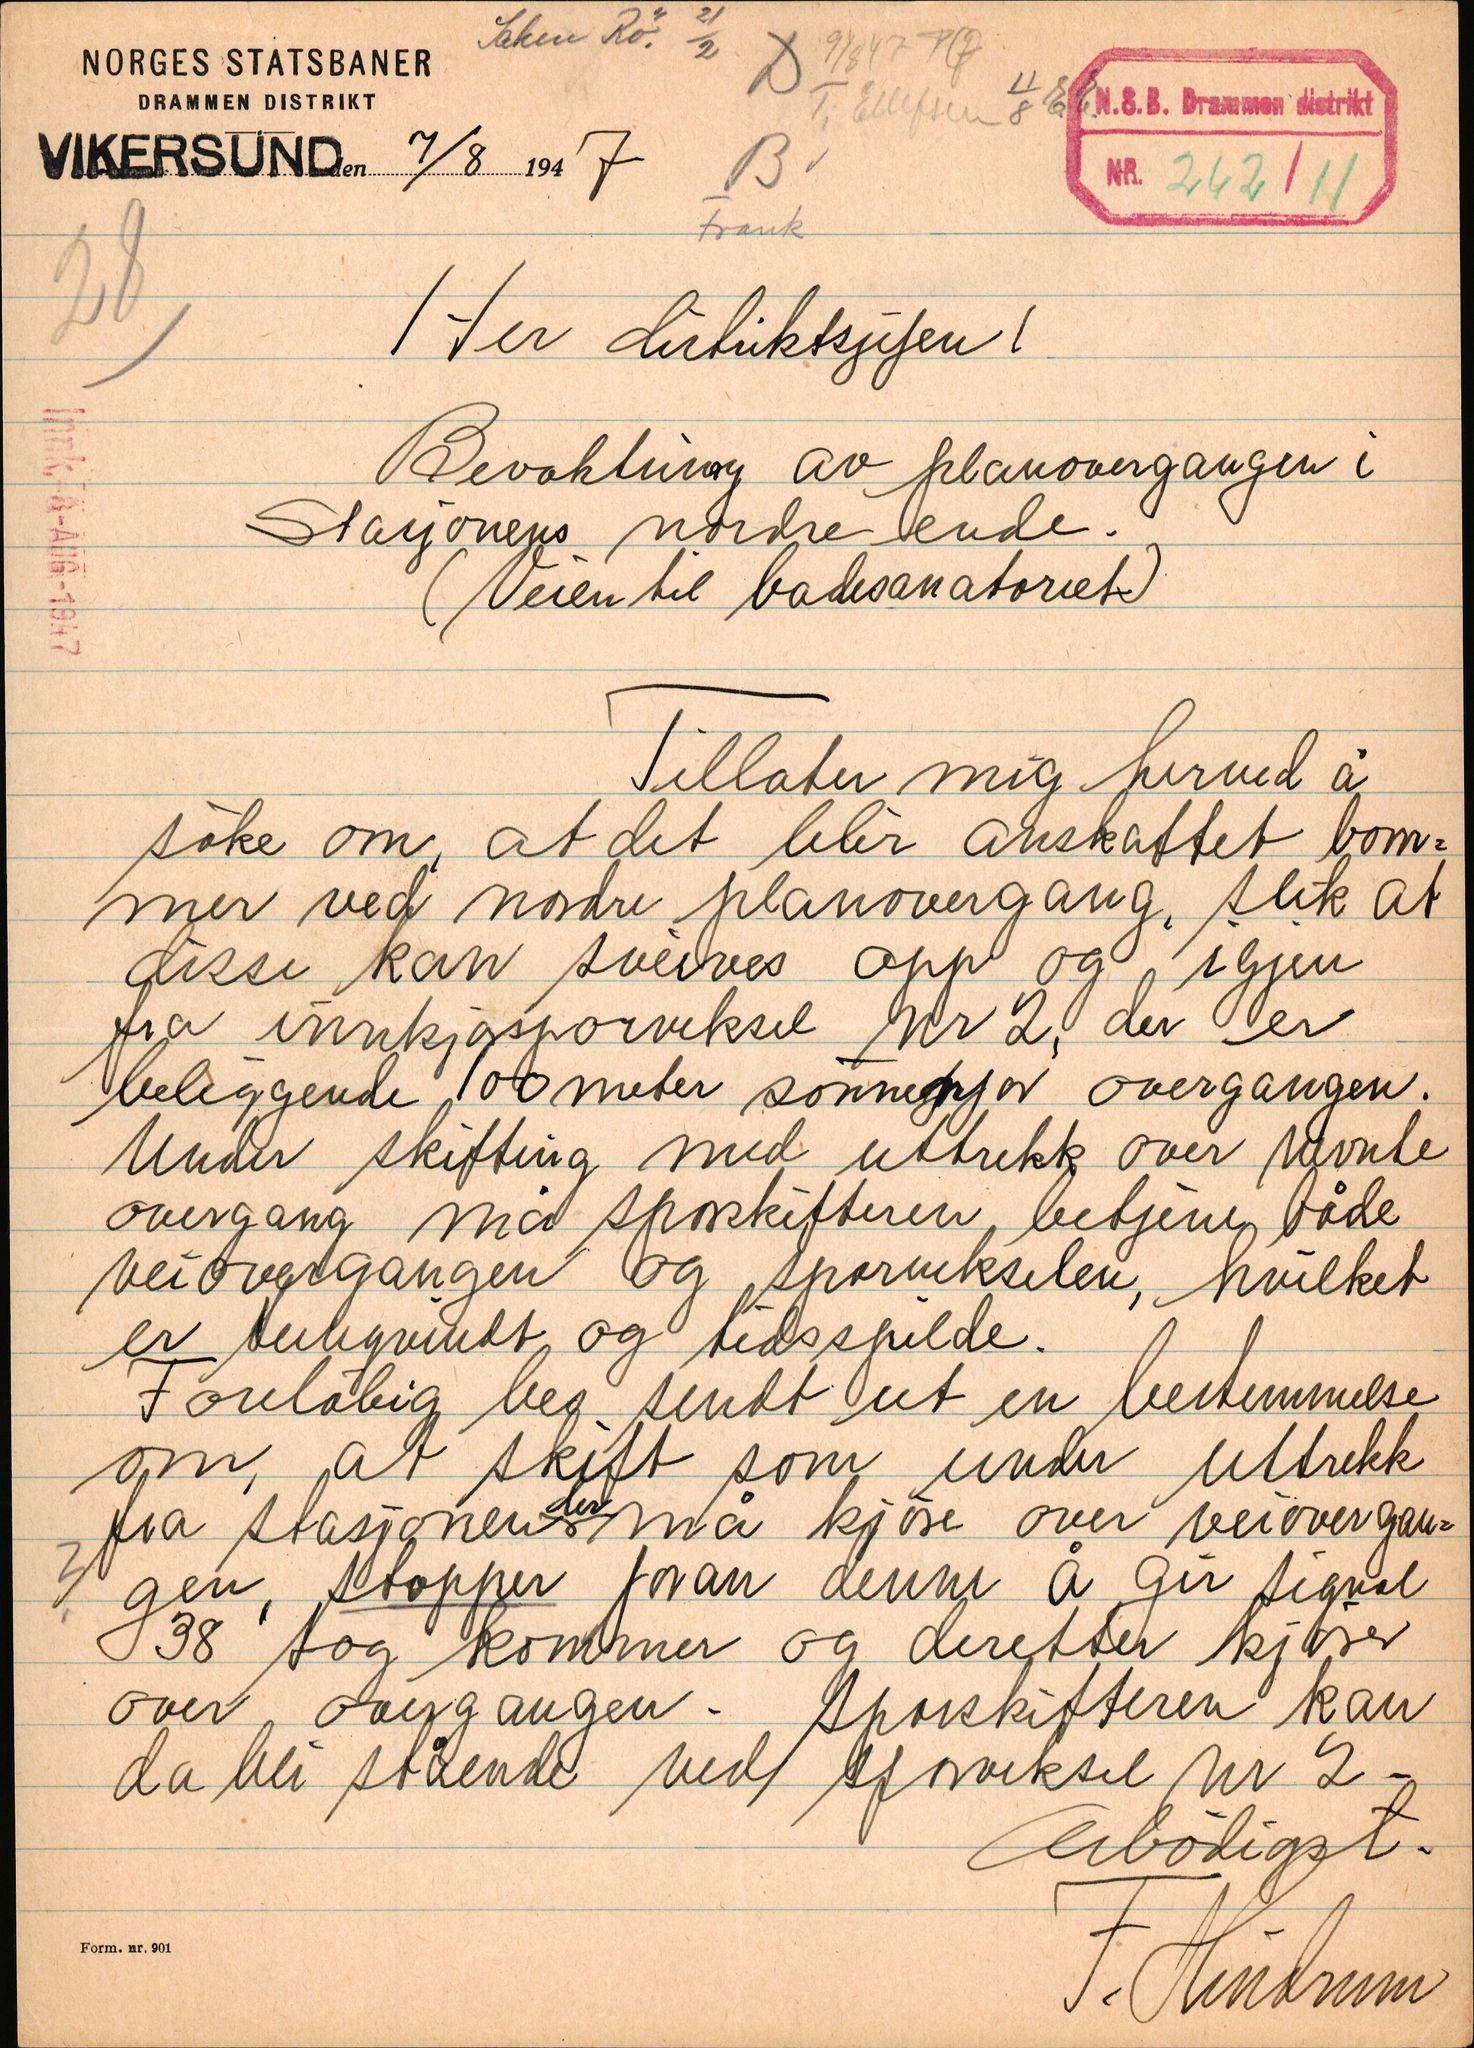 Saken Rö. 21/2
NORGES STATSBANER
DRAMMEN DISTRIKT
VIKERSUND den 7/8 1947
D 9/8 47
T. Ellefsen 11/8
B
Frank
N.S.B. Drammen distrikt
NR. 242/11
28
Innk. -8-AUG-1947
Her distriktssjefen!
Bevoktning av planovergangen i
Stasjonens nordre ende.
(Veien til badesanatoriet)
Tillater mig herved å
söke om, at det blir anskaffet bom=
mer ved nordre planovergang, slik at
disse kan sveives opp og igjen
fra innkjörsporveksel Nr 2, der er
beliggende 100 meter sönnenfor overgangen.
Under skifting med uttrekk over nevnte
overgang må sporskifteren betjene både
veiovergangen og sporvekselen, hvilket
er tungvindt og tidsspilde.
Foreløbig bes sendt ut en bestemmelse
om, at skift som under uttrekk
fra stasjonen der må kjöre over veiovergan=
gen, stopper foran denne å gir signal
38 "tog kommer" og deretter kjörer
over overgangen. Sporskifteren kan
da bli stående ved sporveksel Nr 2.
Ærbödigst.
F. Hindrum
Form. nr. 901